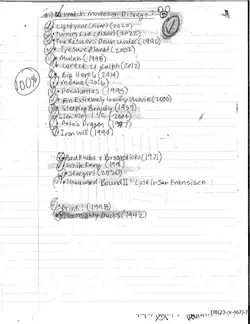 to watch movies on Disney+
Lightyear (new) (2022)
Turning Red (new) (2022)
The Rescuers Down Under (1990)
Treasure Planet (2002)
Mulan (1998)
Wreck-It Ralph (2012)
Big Hero 6 (2014)
Moana (2016)
Pocahontas (1995)
An Extremely Goofy Movie (2000)
Sleeping Beauty (1959)
Lion King 1 1/2 (2004)
Pete's Dragon (1977)
Iron Will (1994)
100%
Bedknobs & Broomsticks (1971)
White Fang (1991)
Stargirl (2020)
Homeward Bound II: Lost in San Francisco
Brink! (1998)
The Mighty Ducks (1992)